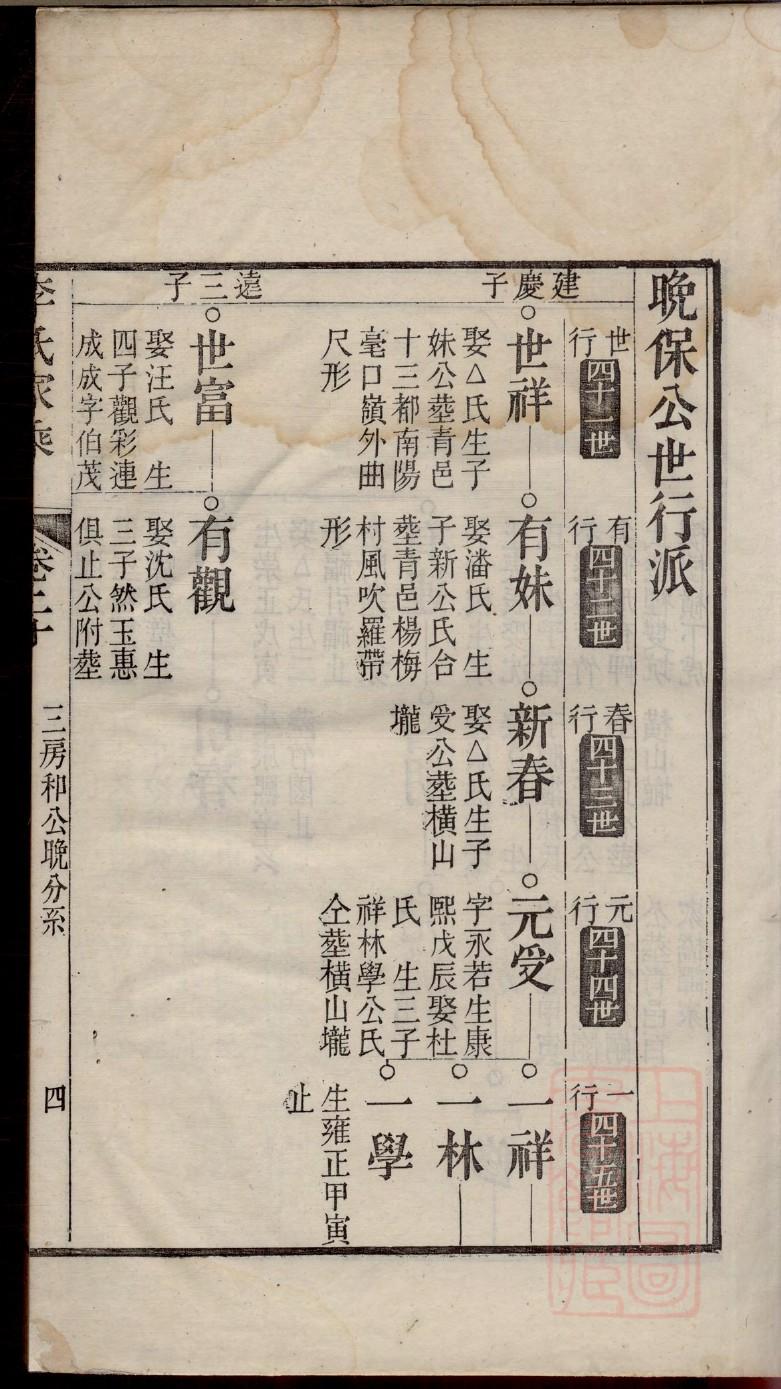 晚保公世行派
世行 四十一世
有行 四十二世
春行 四十三世
元行 四十四世
一行 四十五世
建慶子
世祥
娶△氏生子
妹公塟青邑
十三都南陽
毫口嶺外曲
尺形
有妹
娶潘氏 生
子新公氏合
塟青邑楊梅
村風吹羅帶
形
新春
娶△氏生子
受公塟橫山
壠
元受
字永若生康
熙戊辰娶杜
氏 生三子
祥林學公氏
仝塟橫山壠
一祥
一林
一學
生雍正甲寅
止
遠三子
世富
娶汪氏 生
四子觀彩連
成成字伯茂
有觀
娶沈氏 生
三子然玉惠
俱止公附塟
李氏家乘
卷二十
三房和公晚分系
四